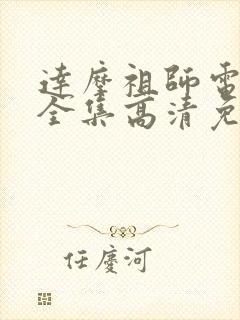 達磨祖師電
全集高清免
任慶河